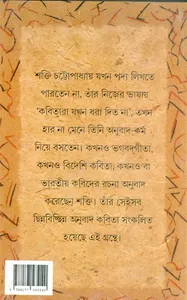 শক্তি চট্টোপাধ্যায় যখন পদ্য লিখতে
পারতেন না, তাঁর নিজের ভাষায়
'কবিতারা যখন ধরা দিত না', তখন
হার না মেনে তিনি অনুবাদ-কর্ম
নিয়ে বসতেন। কখনও ভগবদ্গীতা,
কখনও বিদেশি কবিতা; কখনও-বা
ভারতীয় কবিদের রচনা অনুবাদ
করেছেন শক্তি। তাঁর সেইসব
ছিন্নবিচ্ছিন্ন অনুবাদ কবিতা সংকলিত
হয়েছে এই গ্রন্থে।